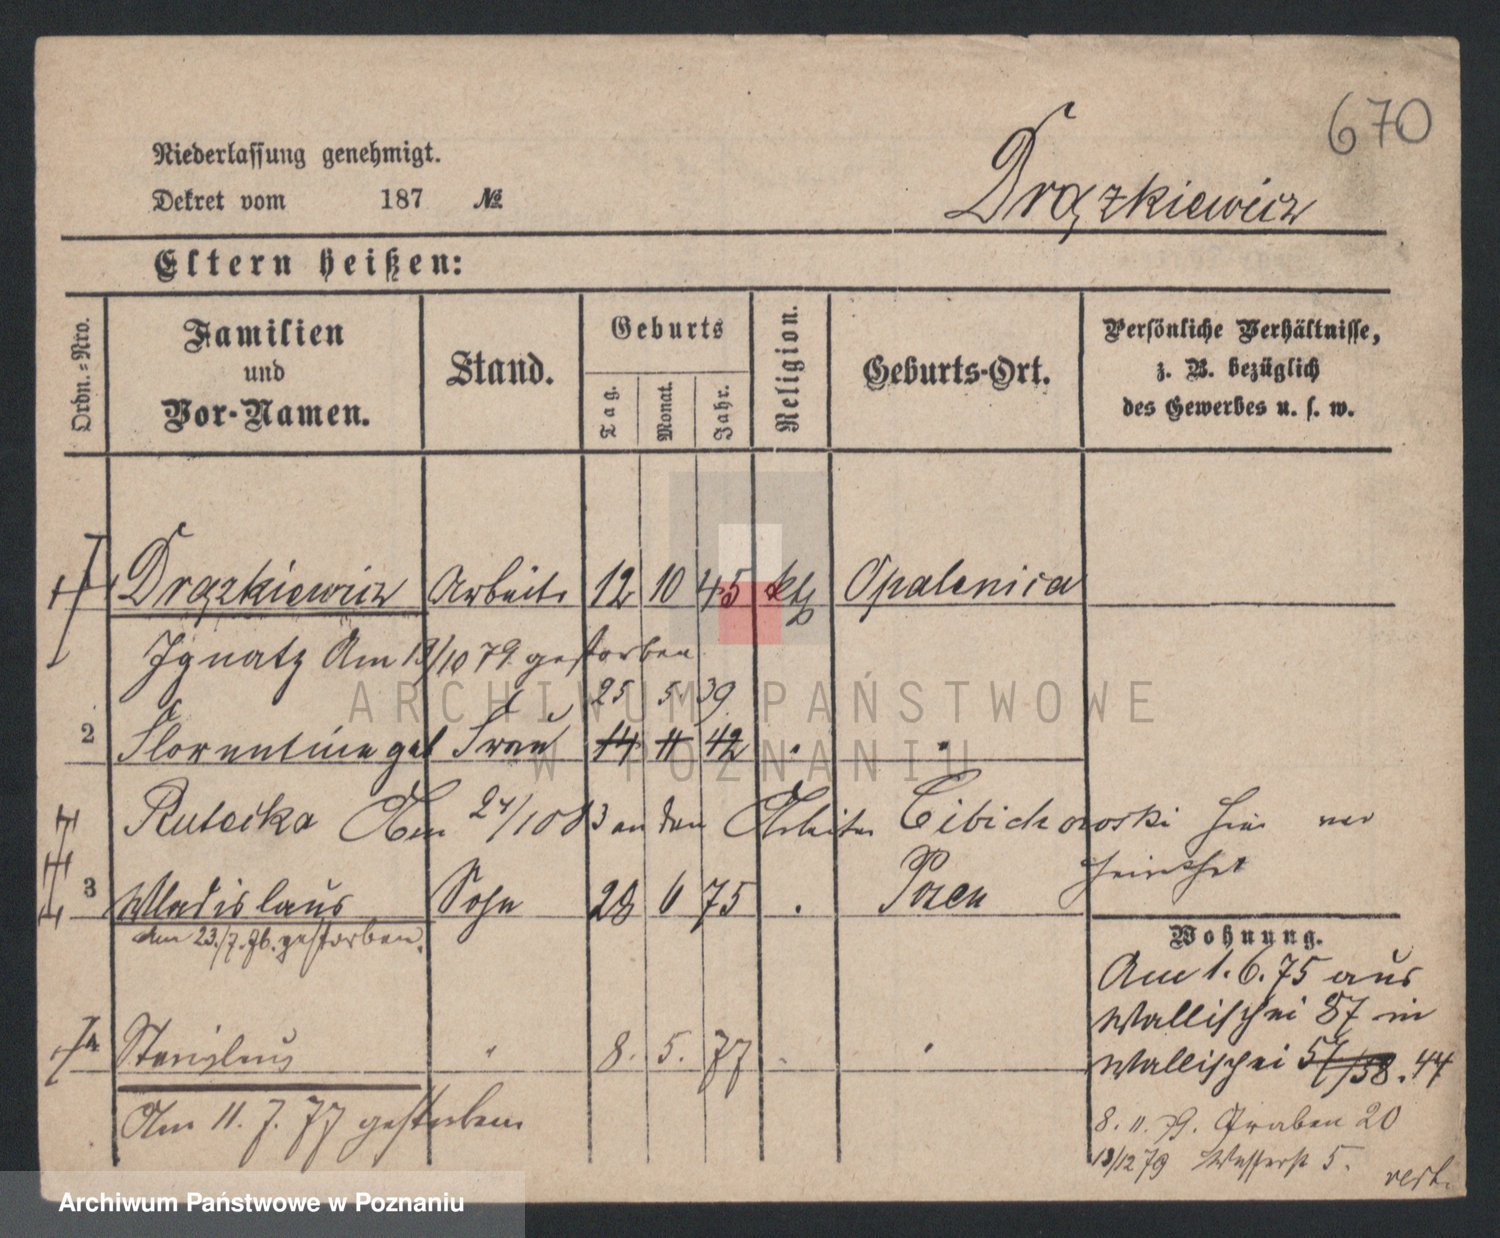 670
Niederlassung genehmigt.
Dekret vom 187 №
Drązkiewicz
Eltern heißen:
Ordn.-Nro.
Familien und Vor-Namen.
Stand.
Geburts
Tag.
Monat.
Jahr.
Religion.
Geburts-Ort.
Persönliche Verhältnisse,
z. B. bezüglich
des Gewerbes u. s. w.
Drązkiewicz Arbeitr 12 10 45 kth Opalenica
Ignatz Am 19/10 79 gestorben
25 5. 39
2 Florentine geb Frau 14 11 42 " "
Rutecka Am 24/10 83 an den Arbeiter Cibichowski hier ver
heirathet
3 Wladislaus Sohn 28 6 75 " Posen
am 23./7. 76. gestorben.
Wohnung.
Am 1. 6. 75 aus
Wallischei 87 in
Wallischei 57/58. 44
Stanislaus " 8. 5. 77 " "
Am 11. 7. 77 gestorben
8. 11. 79. Graben 20
13/12 79 Wasserst 5.
verh.
ARCHIWUM PAŃSTWOWE
W POZNANIU
Archiwum Państwowe w Poznaniu